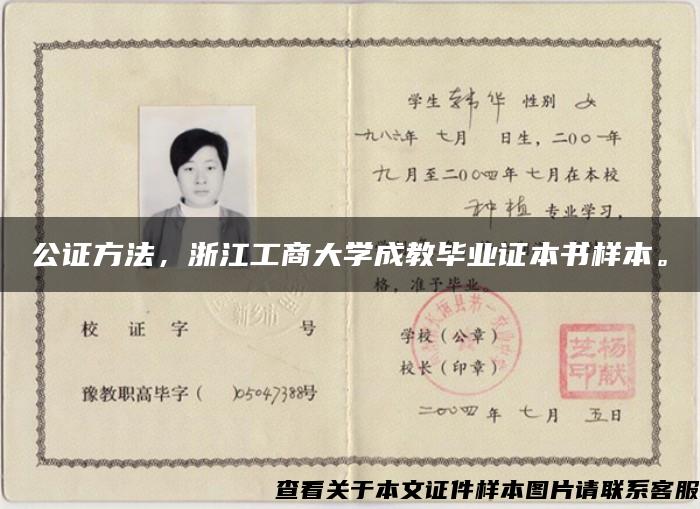 学生韩华 性别 女
一九八六年 七月 日生，二00一年
九月至二00四年七月在本校
种植专业学习，
公证方法，浙江工商大学成教毕业证本书样本。
格，准予毕业。
新乡市
校 证 字 号
学校（公章）
校长（印章）
杨献
艺印
豫教职高毕字（ ）05047388号
二00四年 七月 五日
查看关于本文证件样本图片请联系客服